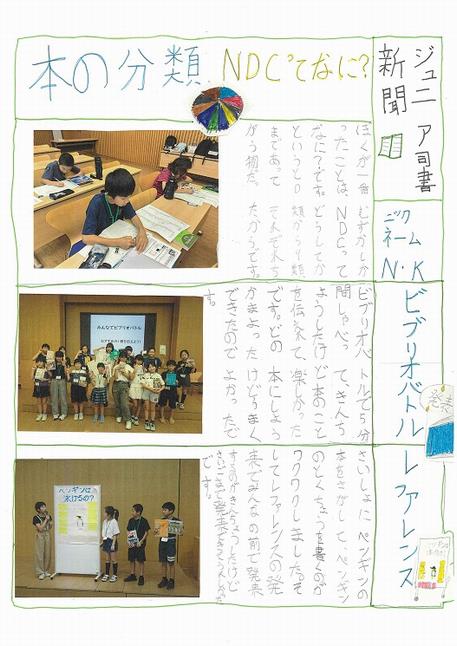 ジュニア司書
新聞
ニック
ネーム
N・K
本の分類 NDCってなに？
ぼくが一番むずかしか
ったことは、NDCって
なに？です。どうしてか
というと0類から9類
まであって、それぞれち
がう物だったからです。
ビブリオバトル
ビブリオバトルで5分
間しゃべって、きんち
ょうしたけど本のこと
を伝えて、楽しかった
です。どの本にしよう
かまよったけどうまく
できたのでよかったで
す。
みんなでビブリオバトル
発表
レファレンス
さいしょにペンギンの
本をさがして、ペンギン
のとくちょうを書くのが
ワクワクしました。そ
してレファレンスの発
表でみんなの前で発表
するのがきんちょうしたけど
さいごまで発表できてうれしかった
です。
ペンギンは